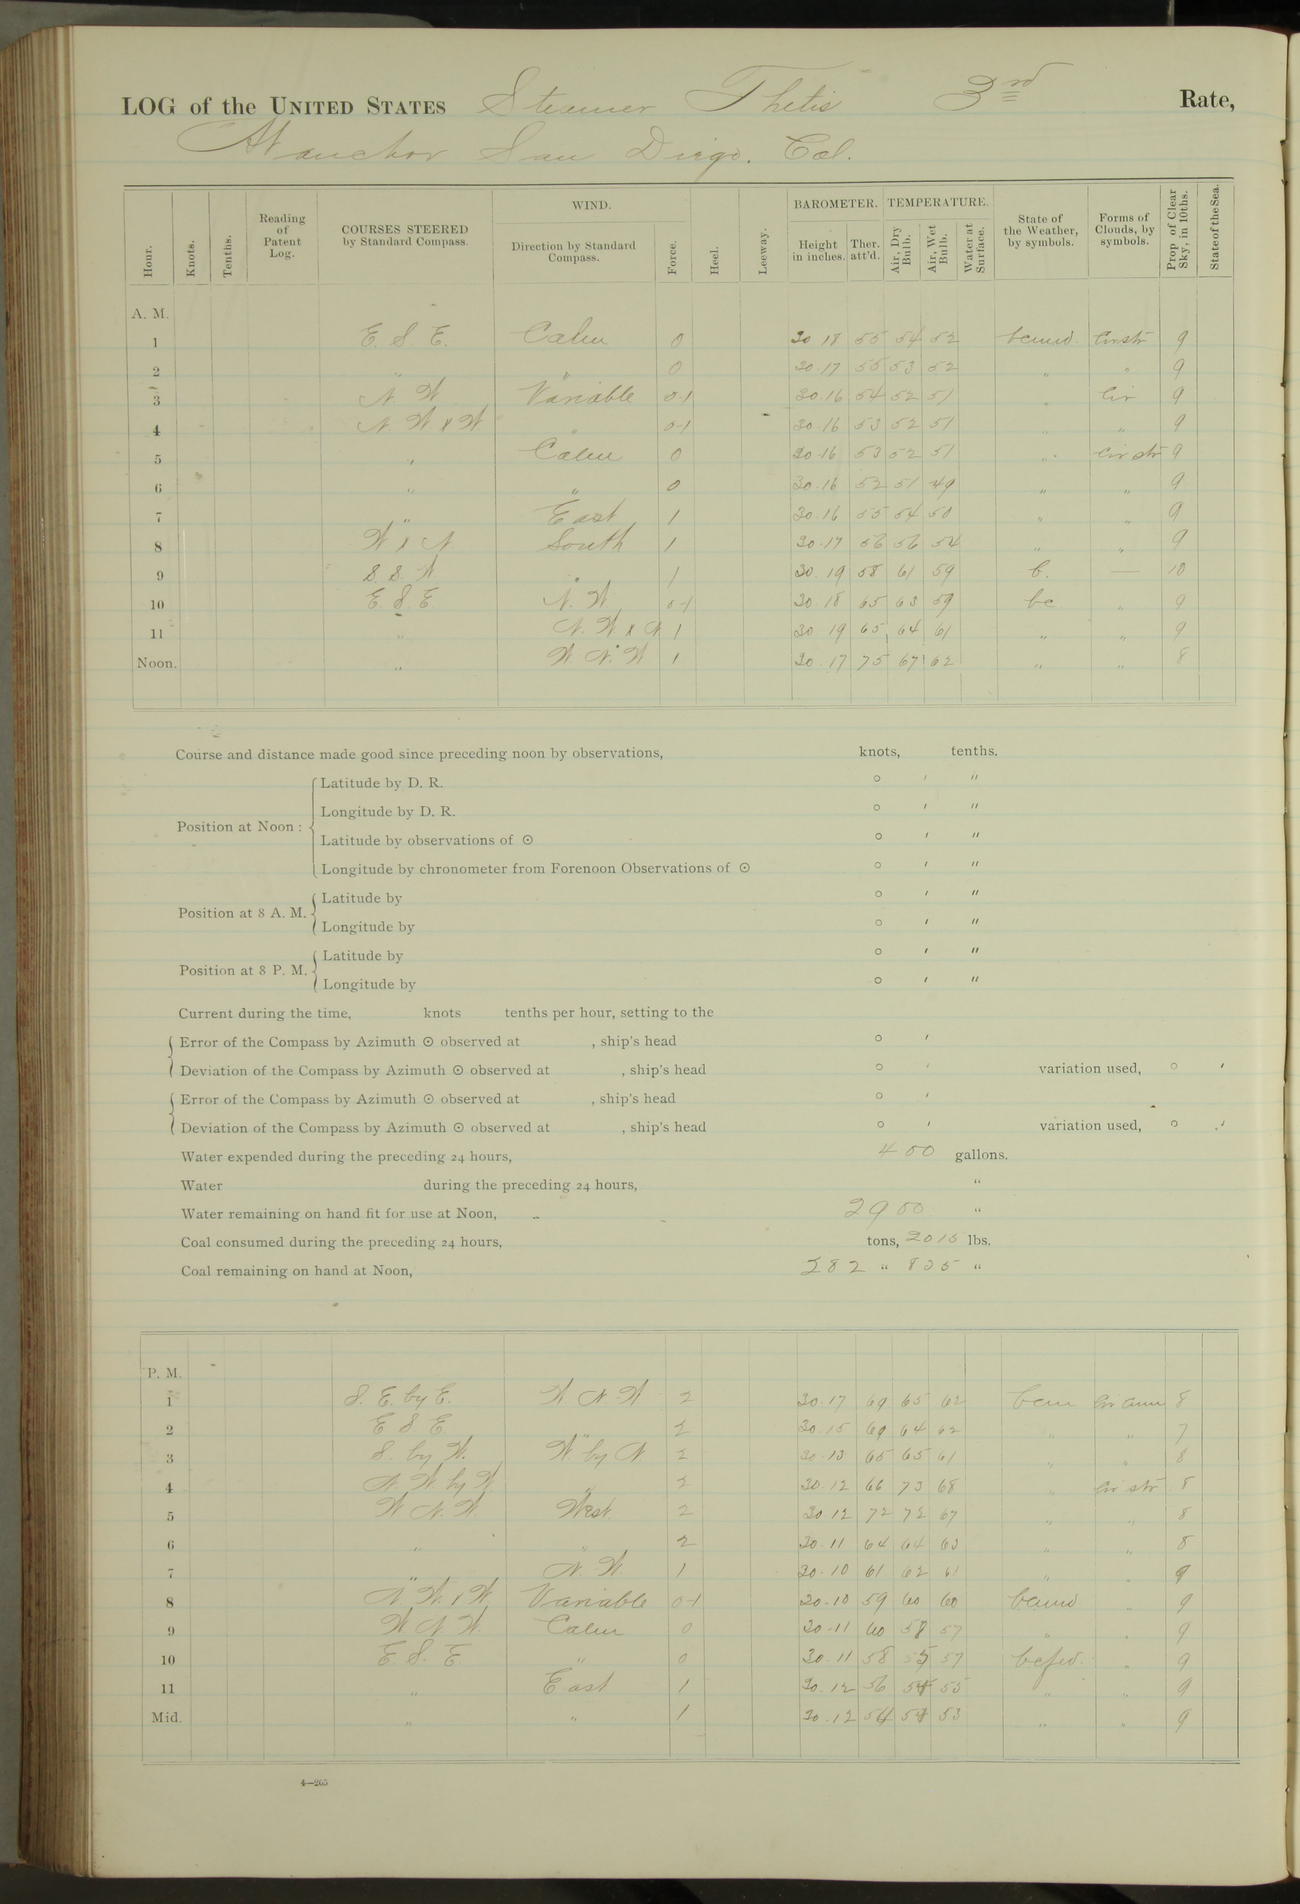 LOG of the UNITED STATES Steamer Thetis 3rd Rate,
At anchor San Diego. Cal.
Hour. Knots. Tenths. Reading of Patent Log. COURSES STEERED by Standard Compass. WIND. Direction by Standard Compass. Force. Heel. Leeway. BAROMETER. Height in inches. Ther. att'd. TEMPERATURE. Air, Dry Bulb. Air, Wet Bulb. Water at Surface. State of the Weather, by symbols. Forms of Clouds, by symbols. Prop of Clear Sky, in 10ths. State of the Sea.
A. M.
1 E. S. E. Calm 0 30 18 55 54 52 bcmw. Cir str 9
2 " " 0 30.17 55 53 52 " " 9
3 N W Variable 0-1 30.16 54 52 51 " Cir 9
4 N W x W " 0-1 30.16 53 52 51 " " 9
5 " Calm 0 30.16 53 52 51 " Cir str 9
6 " " 0 30.16 52 51 49 " " 9
7 " East 1 30.16 55 54 50 " " 9
8 W x N South 1 30.17 56 56 54 " " 9
9 S. S. W " 1 30.19 58 61 59 b. — 10
10 E. S. E. N. W 0-1 30.18 65 63 59 bc " 9
11 " N. W x N 1 30 19 65 64 61 " " 9
Noon. " W N. W 1 30.17 75 67 62 " " 8
Course and distance made good since preceding noon by observations, knots, tenths.
Position at Noon :
Latitude by D. R. ° ′ ″
Longitude by D. R. ° ′ ″
Latitude by observations of ☉ ° ′ ″
Longitude by chronometer from Forenoon Observations of ☉ ° ′ ″
Position at 8 A. M.
Latitude by ° ′ ″
Longitude by ° ′ ″
Position at 8 P. M.
Latitude by ° ′ ″
Longitude by ° ′ ″
Current during the time, knots tenths per hour, setting to the
Error of the Compass by Azimuth ☉ observed at , ship's head ° ′
Deviation of the Compass by Azimuth ☉ observed at , ship's head ° ′ variation used, ° ′
Error of the Compass by Azimuth ☉ observed at , ship's head ° ′
Deviation of the Compass by Azimuth ☉ observed at , ship's head ° ′ variation used, ° ′
Water expended during the preceding 24 hours, 400 gallons.
Water during the preceding 24 hours, "
Water remaining on hand fit for use at Noon, 2900 "
Coal consumed during the preceding 24 hours, tons, 2015 lbs.
Coal remaining on hand at Noon, 282 " 825 "
P. M.
1 S. E. by E. W N W 2 30.17 69 65 62 bcm Cir Cum 8
2 E S E " 2 30.15 69 64 62 " " 7
3 S. by W. W by N 2 30.13 65 65 61 " " 8
4 N W. by W " 2 30.12 66 73 68 " Cir str 8
5 W N. W. West. 2 30 12 72 72 67 " " 8
6 " " 2 30.11 64 64 63 " " 8
7 " N. W. 1 30.10 61 62 61 " " 9
8 N W x W Variable 0-1 30.10 59 60 60 bcmw " 9
9 W N W. Calm 0 30.11 60 58 57 " " 9
10 E. S. E. " 0 30.11 58 57 " 9
11 " East 1 30.12 56 55 " " 9
Mid. " " 1 30.12 54 53 " " 9
4—265